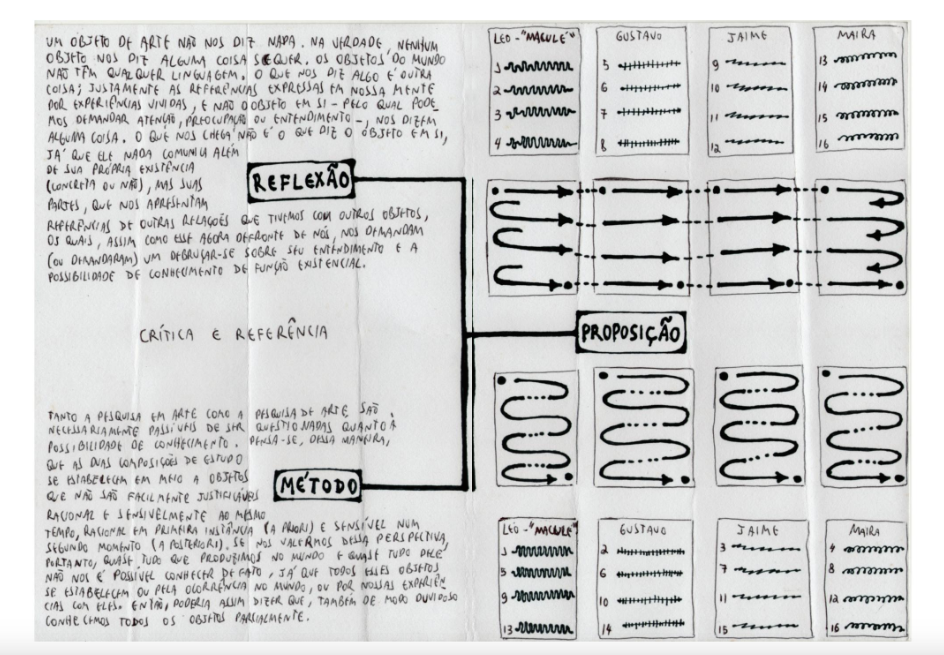 UM OBJETO DE ARTE NÃO NOS DIZ NADA. NA VERDADE, NENHUM
OBJETO NOS DIZ ALGUMA COISA SEQUER. OS OBJETOS DO MUNDO
NÃO TÊM QUALQUER LINGUAGEM. O QUE NOS DIZ ALGO É OUTRA
COISA; JUSTAMENTE AS REFERÊNCIAS EXPRESSAS EM NOSSA MENTE
POR EXPERIÊNCIAS VIVIDAS, E NÃO O OBJETO EM SI - PELO QUAL PODE
MOS DEMANDAR ATENÇÃO, PREOCUPAÇÃO OU ENTENDIMENTO -, NOS DIZEM
ALGUMA COISA. O QUE NOS CHEGA NÃO É O QUE DIZ O OBJETO EM SI,
JÁ QUE ELE NADA COMUNICA ALÉM
DE SUA PRÓPRIA EXISTÊNCIA
(CONCRETA OU NÃO), MAS SUAS
PARTES, QUE NOS APRESENTAM
REFERÊNCIAS DE OUTRAS RELAÇÕES QUE TIVEMOS COM OUTROS OBJETOS,
OS QUAIS, ASSIM COMO ESSE AGORA DEFRONTE DE NÓS, NOS DEMANDAM
(OU DEMANDARAM) UM DEBRUÇAR-SE SOBRE SEU ENTENDIMENTO E A
POSSIBILIDADE DE CONHECIMENTO DE FUNÇÃO EXISTENCIAL.
REFLEXÃO
CRÍTICA E REFERÊNCIA
TANTO A PESQUISA EM ARTE COMO A PESQUISA DE ARTE SÃO
NECESSARIAMENTE PASSÍVEIS DE SER QUESTIONADAS QUANTO À
POSSIBILIDADE DE CONHECIMENTO. PENSA-SE, DESSA MANEIRA,
QUE AS DUAS COMPOSIÇÕES DE ESTUDO
SE ESTABELECEM EM MEIO A OBJETOS
QUE NÃO SÃO FACILMENTE JUSTIFICÁVEIS
RACIONAL E SENSIVELMENTE AO MESMO
TEMPO, RACIONAL EM PRIMEIRA INSTÂNCIA (A PRIORI) E SENSÍVEL NUM
SEGUNDO MOMENTO (A POSTERIORI). SE NOS VALERMOS DESSA PERSPECTIVA,
PORTANTO, QUASE TUDO QUE PRODUZIMOS NO MUNDO E QUASE TUDO DELE
NÃO NOS É POSSÍVEL CONHECER DE FATO, JÁ QUE TODOS ESSES OBJETOS
SE ESTABELECEM OU PELA OCORRÊNCIA NO MUNDO, OU POR NOSSAS EXPERIÊN
CIAS COM ELES. ENTÃO, PODERIA ASSIM DIZER QUE, TAMBÉM DE MODO DUVIDOSO
CONHECEMOS TODOS OS OBJETOS PARCIALMENTE.
MÉTODO
PROPOSIÇÃO
LEO - "MACULE"
1
2
3
4
GUSTAVO
5
6
7
8
JAIME
9
10
11
12
MAIRA
13
14
15
16
LEO - "MACULE"
1
5
9
13
GUSTAVO
2
6
10
14
JAIME
3
7
11
15
MAIRA
4
8
12
16